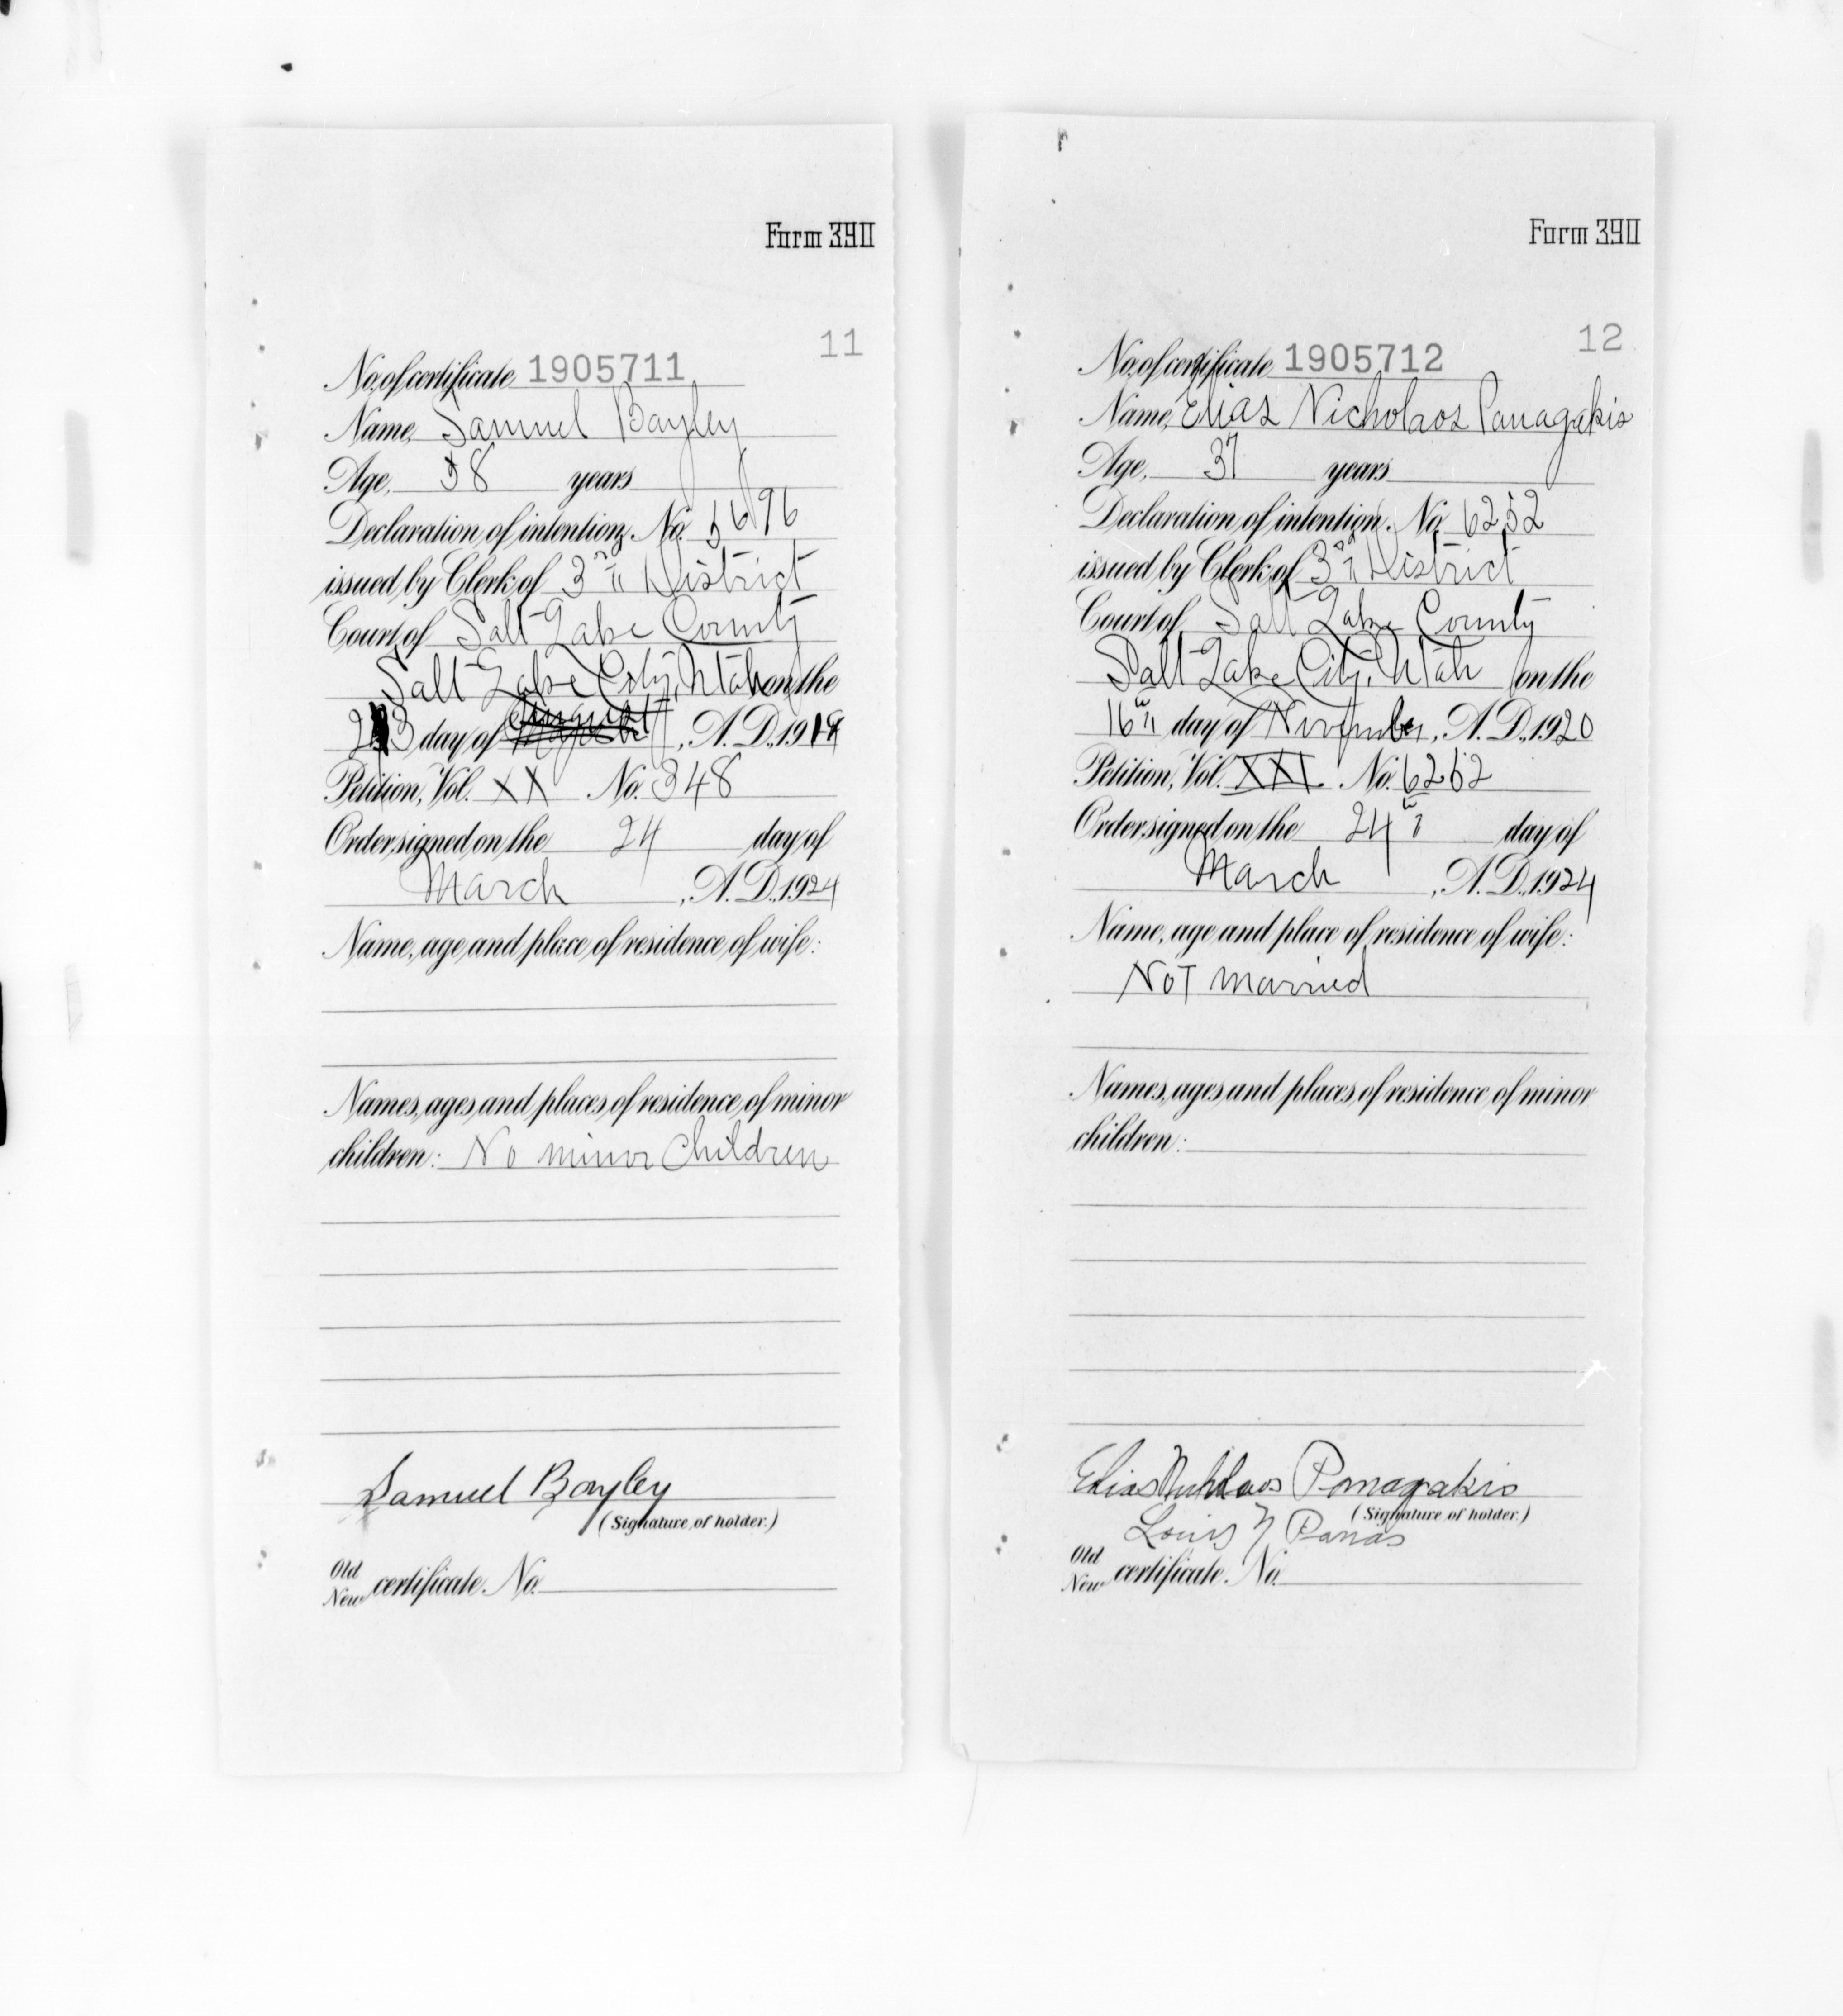 Form 390
11
No. of certificate 1905711
Name, Samuel Bayley
Age, 58 years
Declaration of intention, No. 5696
issued by Clerk of 3rd District
Court of Salt Lake County
Salt Lake City, Utah on the
day of August, A.D., 191
Petition, Vol. XX No. 348
Order signed on the 24 day of
March, A.D., 1924
Name, age and place of residence of wife:
Names, ages and places of residence of minor
children: No minor Children
Samuel Bayley
(Signature of holder.)
Old
New certificate No.
Form 390
12
No. of certificate 1905712
Name, Elias Nicholaos Panagakis
Age, 37 years
Declaration of intention, No. 6252
issued by Clerk of 3rd District
Court of Salt Lake County
Salt Lake City, Utah on the
16th day of November, A.D., 1920
Petition, Vol. XXI No. 6252
Order signed on the 24th day of
March, A.D., 1924
Name, age and place of residence of wife:
Not married
Names, ages and places of residence of minor
children:
Elias Nichlaos Panagakis
(Signature of holder.)
Louis N Panas
Old
New certificate No.